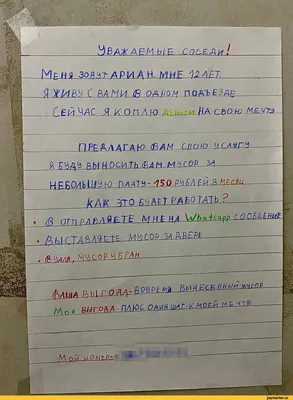 УВАЖАЕМЫЕ СОСЕДИ!
МЕНЯ ЗОВУТ АРИАН, МНЕ 12 ЛЕТ.
Я ЖИВУ С ВАМИ В ОДНОМ ПОДЪЕЗДЕ
СЕЙЧАС Я КОПЛЮ ДЕНЬГИ НА СВОЮ МЕЧТУ
ПРЕДЛАГАЮ ВАМ СВОЮ УСЛУГУ
Я БУДУ ВЫНОСИТЬ ВАМ МУСОР ЗА
НЕБОЛЬШУЮ ПЛАТУ - 150 РУБЛЕЙ В МЕСЯЦ
КАК ЭТО БУДЕТ РАБОТАТЬ?
• В ОТПРАВЛЯЕТЕ МНЕ НА WhatsApp СООБЩЕНИЕ
• ВЫСТАВЛЯЕТЕ МУСОР ЗА ДВЕРЬ
• ВУАЛЯ, МУСОР УБРАН
ВАША ВЫГОДА - ВОВРЕМЯ ВЫНЕСЕННЫЙ МУСОР
МОЯ ВЫГОДА - ПЛЮС ОДИН ШАГ К МОЕЙ МЕЧТЕ
МОЙ НОМЕР:
joyreactor.cc